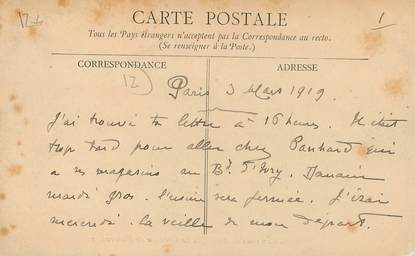 12
1
CARTE POSTALE
Tous les Pays étrangers n'acceptent pas la Correspondance au recto.
(Se renseigner à la Poste.)
CORRESPONDANCE
ADRESSE
12)
Paris 3 Mars 1919
J'ai trouvé ta lettre à 16 heures. Il était
trop tard pour aller chez Panhard qui
a ses magasins au Bd d'Ivry. Demain
mardi gros. l'usine sera fermée. J'irai
mercredi. la veille de mon départ.